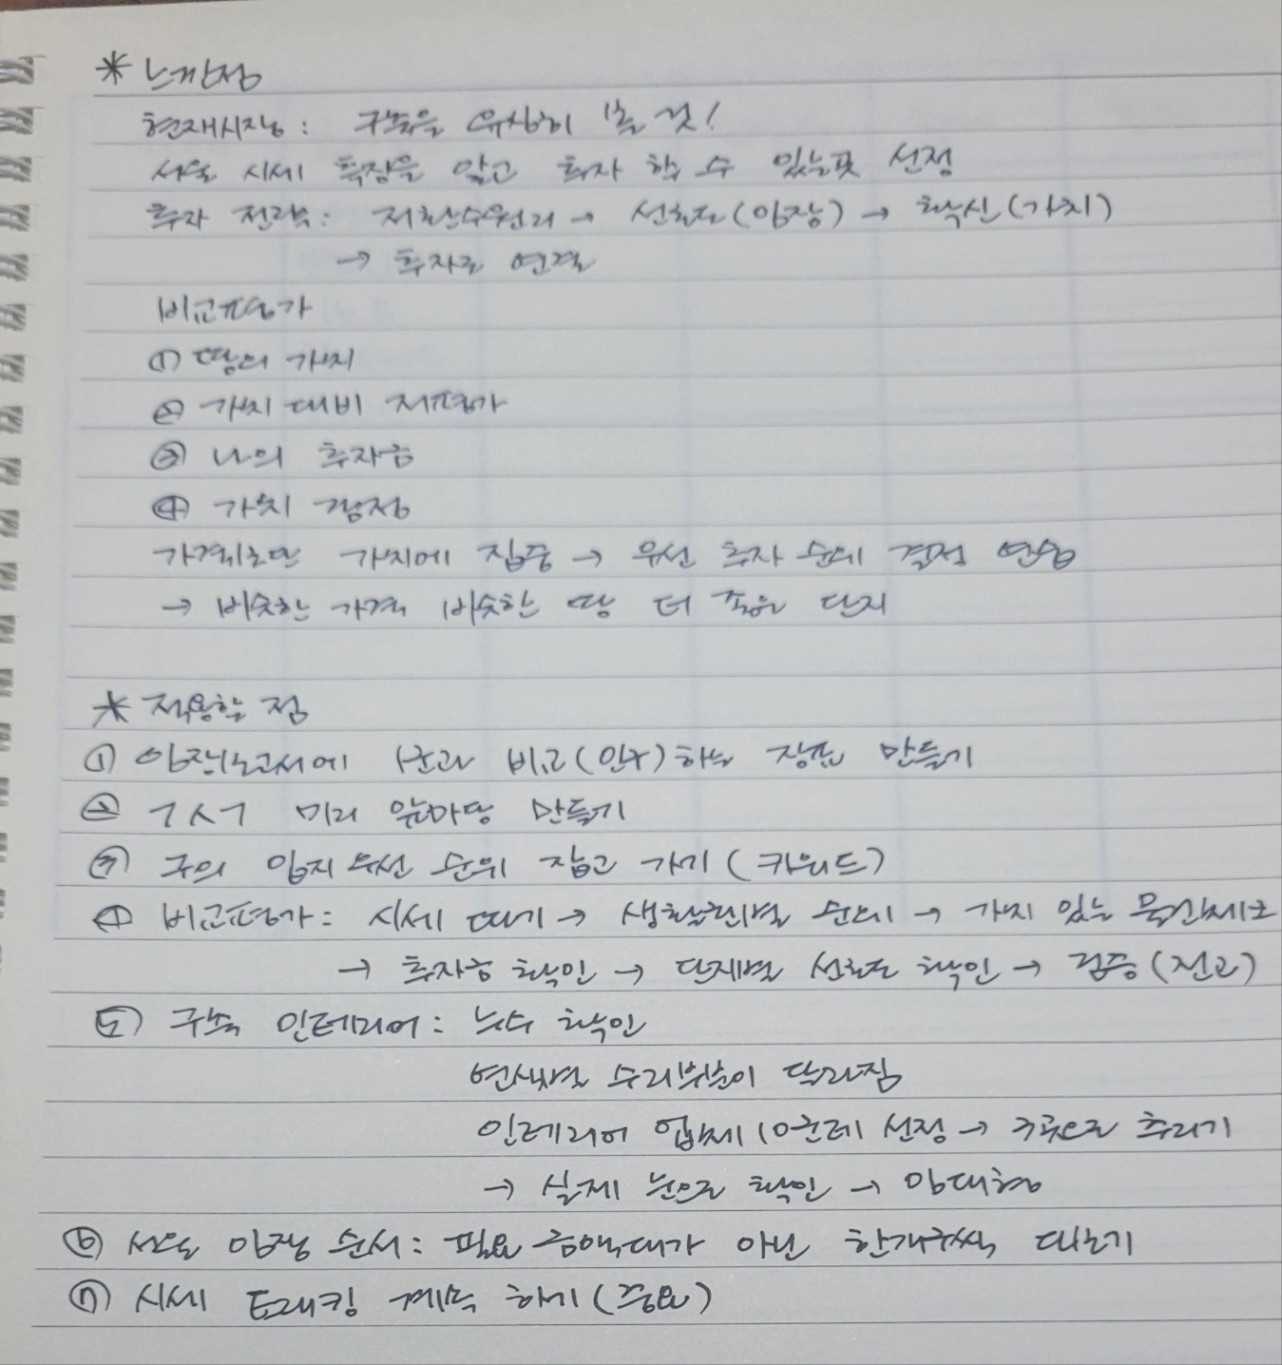 *느낀점
현재시장 : 구축을 유심히 볼 것!
서울 시세 특징을 알고 투자 할 수 있는곳 선정
투자 전략 : 저환수원리 → 선호도(임장) → 확신(가치)
→ 투자로 연결
비교평가
① 땅의 가치
② 가치 대비 저평가
③ 나의 투자금
④ 가치 검정
가격보단 가치에 집중 → 우선 투자 순위 결정 연습
→ 비슷한 가격 비슷한 땅 더 좋은 단지
* 적용할 점
① 임장보고서에 비교(인구)하는 장표 만들기
② ㄱㅅㄱ 미리 앞마당 만들기
③ 구의 입지 우선 순위 잡고 가기(키워드)
④ 비교평가 : 시세 따기 → 생활권별 순위 → 가치 있는 물건체크
→ 투자금 확인 → 단지별 선호도 확인 → 검증(전고)
⑤ 구축 인테리어 : 누수 확인
연식별 수리부분이 달라짐
인테리어 업체 10군데 선정 → 3곳으로 추리기
→ 실제 눈으로 확인 → 임대형
⑥ 서울 임장 순서 : 필요 금액대가 아닌 한개구씩 다니기
⑦ 시세 트래킹 계속 하기(중요)